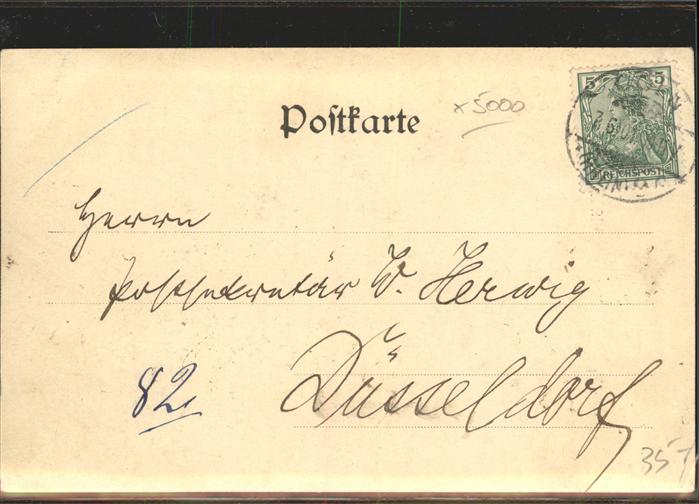 5 5
x 5000
Postkarte
REICHSPOST
Herrn
Postsekretär W. Herwig
82
Düsseldorf
35